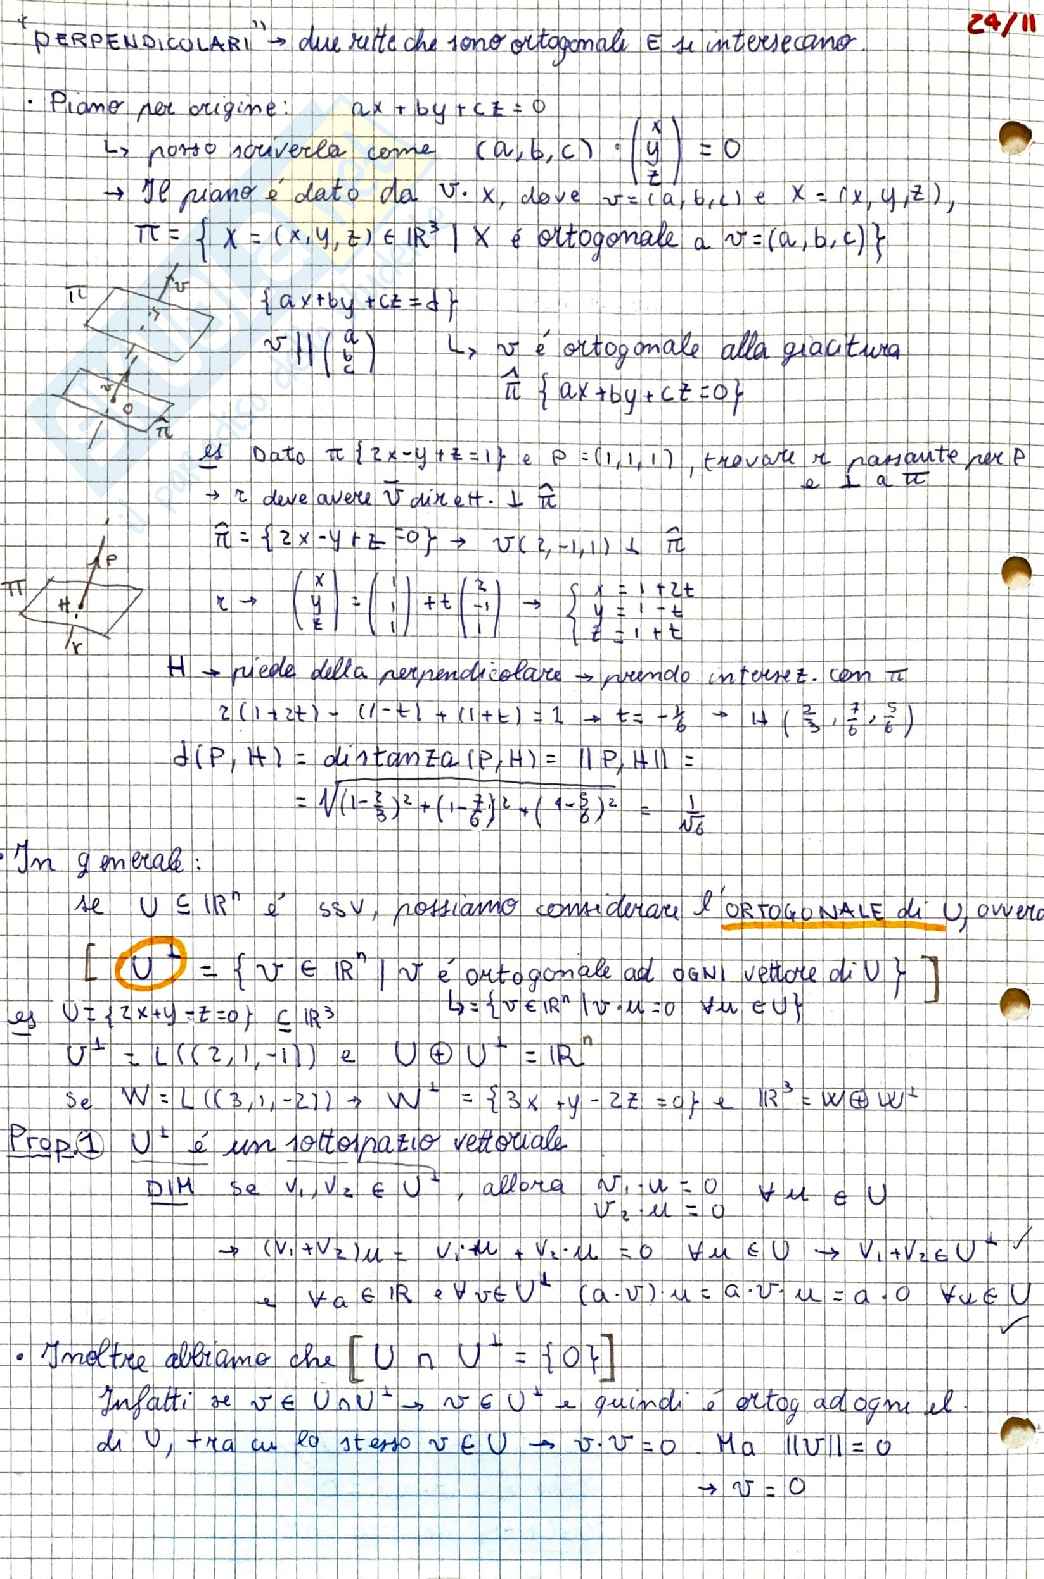 24/11
"PERPENDICOLARI" → due rette che sono ortogonali E si intersecano.
· Piano per origine: ax + by + cz = 0
↳ posso scriverla come (a, b, c) · (x y z) = 0
→ Il piano é dato da v · x, dove v = (a, b, c) e X = (x, y, z),
π = { X = (x, y, z) ∈ ℝ³ | X é ortogonale a v = (a, b, c) }
π v
{ax+by+cz = d}
v || (a b c) ↳ v é ortogonale alla giacitura
π̂ {ax+by+cz=0}
v O π̂
es Dato π {2x-y+z=1} e P = (1,1,1), trovare r passante per P
e ⊥ a π
→ r deve avere v̄ dirett. ⊥ π̂
π̂ = {2x-y+z=0} → v(2,-1,1) ⊥ π̂
π P H r
r → (x y z) = (1 1 1) + t (2 -1 1) → { x = 1+2t
y = 1-t
z = 1+t
H → piede della perpendicolare → prendo intersez. con π
2(1+2t) - (1-t) + (1+t) = 1 → t = -1/6 → H (2/3, 7/6, 5/6)
d(P, H) = distanza (P, H) = ||P, H|| =
= √((1-2/3)² + (1-7/6)² + (1-5/6)²) = 1/√6
· In generale:
se U ⊆ ℝⁿ é SSV, possiamo considerare l'ORTOGONALE di U, ovvero
[ U⊥ = { v ∈ ℝⁿ | v é ortogonale ad OGNI vettore di U } ]
↳ = {v ∈ ℝⁿ | v·u = 0 ∀u ∈ U}
es U = {2x+y-z=0} ⊆ ℝ³
U⊥ = L((2,1,-1)) e U ⊕ U⊥ = ℝⁿ
se W = L((3,1,-2)) → W⊥ = {3x+y-2z=0} e ℝ³ = W ⊕ W⊥
Prop. 1 U⊥ é un sottospazio vettoriale
DIM se v₁, v₂ ∈ U⊥, allora v₁·u = 0 ∀u ∈ U
v₂·u = 0
→ (v₁+v₂)u = v₁·u + v₂·u = 0 ∀u ∈ U → v₁+v₂ ∈ U⊥ ✓
e ∀a ∈ ℝ e ∀v ∈ U⊥ (a·v)·u = a·v·u = a·0 ∀u ∈ U ✓
· Inoltre abbiamo che [ U ∩ U⊥ = {0} ]
Infatti se v ∈ U∩U⊥ → v ∈ U⊥ e quindi é ortog ad ogni el.
di U, tra cui lo stesso v ∈ U → v·v = 0. Ma ||v|| = 0
→ v = 0